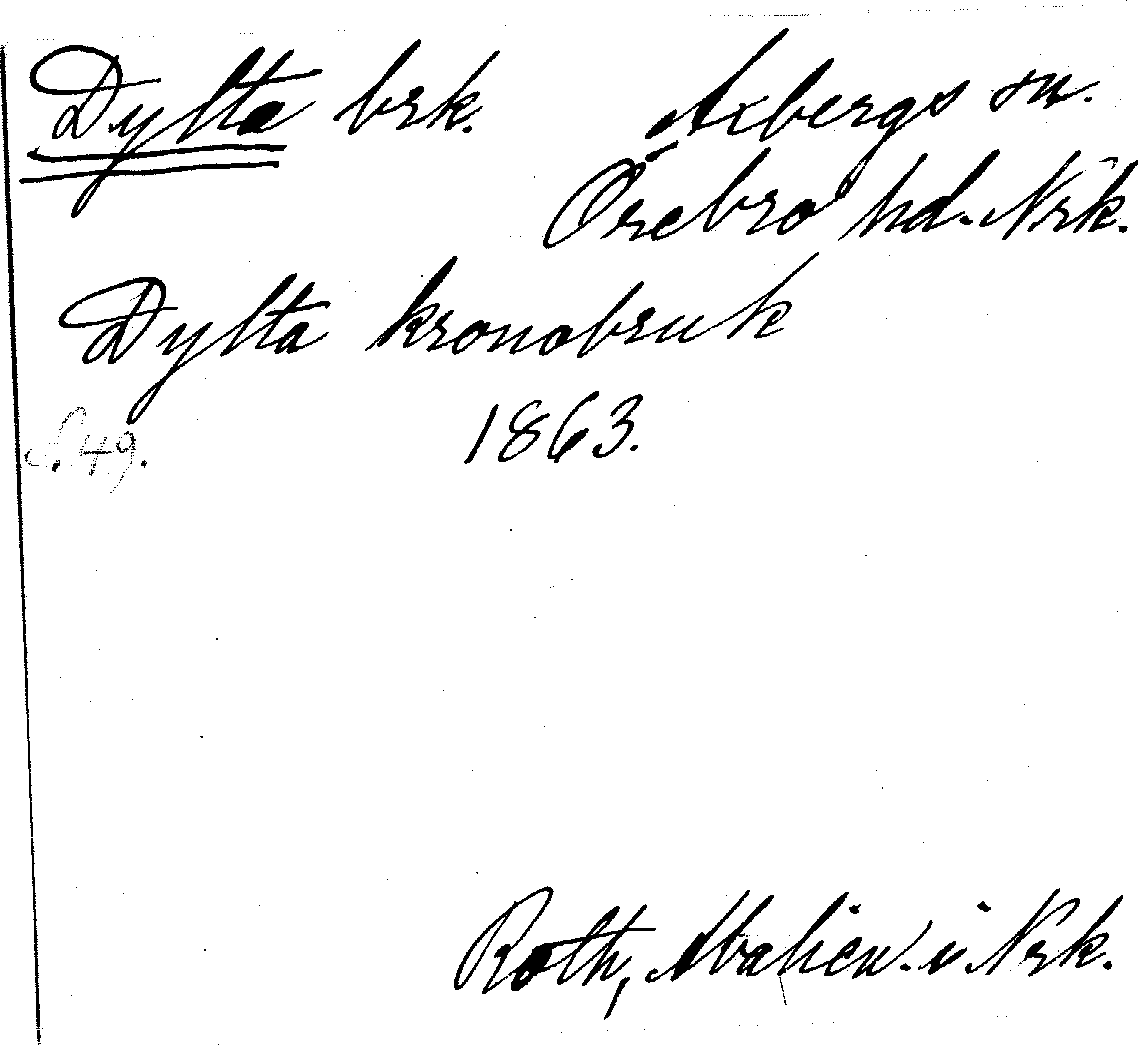 Dylta brk. Axbergs sn.
Örebro hd. Nrk.
Dylta kronobruk
1863.
S. 49.
Roth, i Nrk.